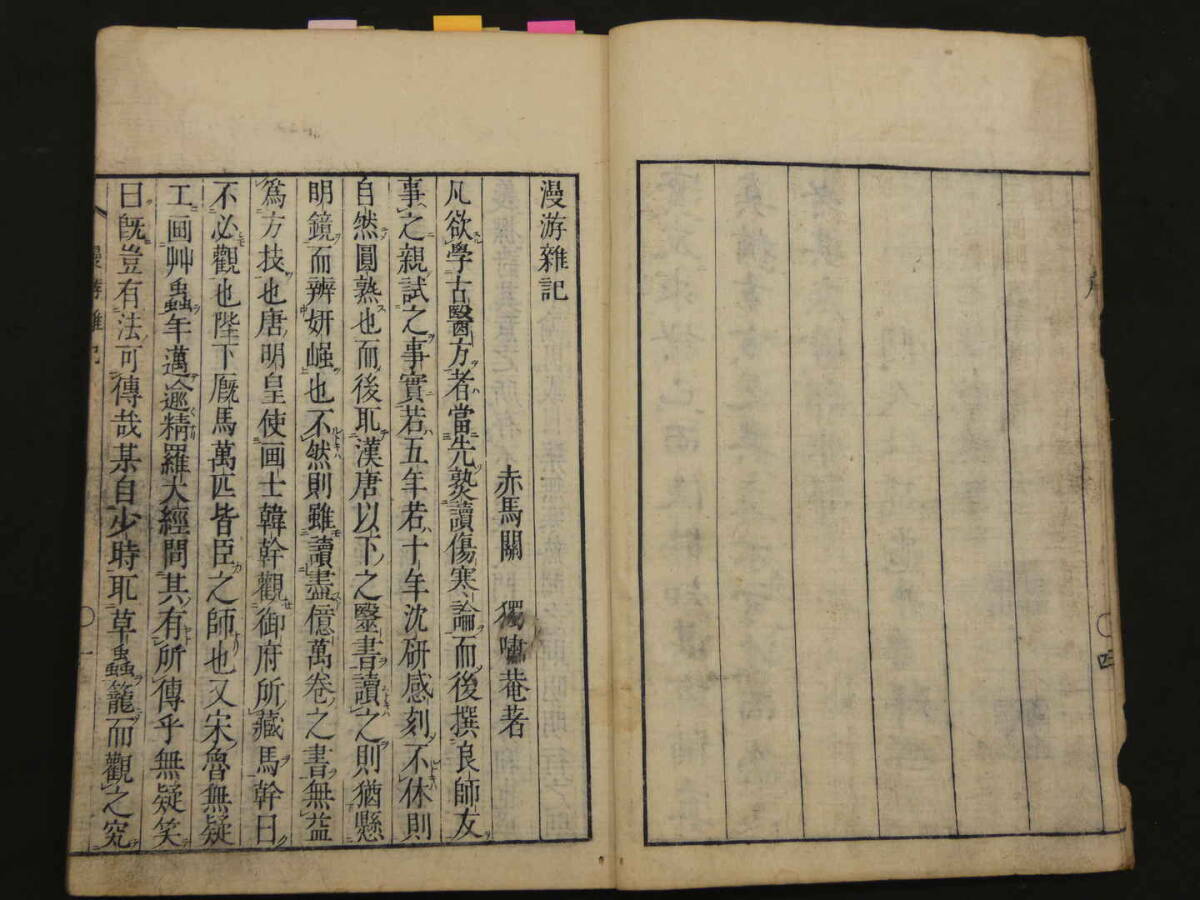 漫游雜記
赤馬關 獨嘯菴著
凡欲學古醫方者當先熟讀傷寒論而後撰良師友
事之親試之事實若五年若十年沈研感刻不休則
自然圓熟也而後耴漢唐以下之毉書讀之則猶懸
明鏡而辨妍媸也不然則雖讀盡億萬卷之書無益
爲方技也唐明皇使画士韓幹觀御府所藏馬幹曰
不必觀也陛下厩馬萬匹皆臣之師也又宋魯無疑
工画艸蟲年邁逾精羅大經問其有所傳乎無疑笑
曰旣豈有法可傳哉某自少時耴草蟲籠而觀之究
漫游雜記
〇一
序
〇四